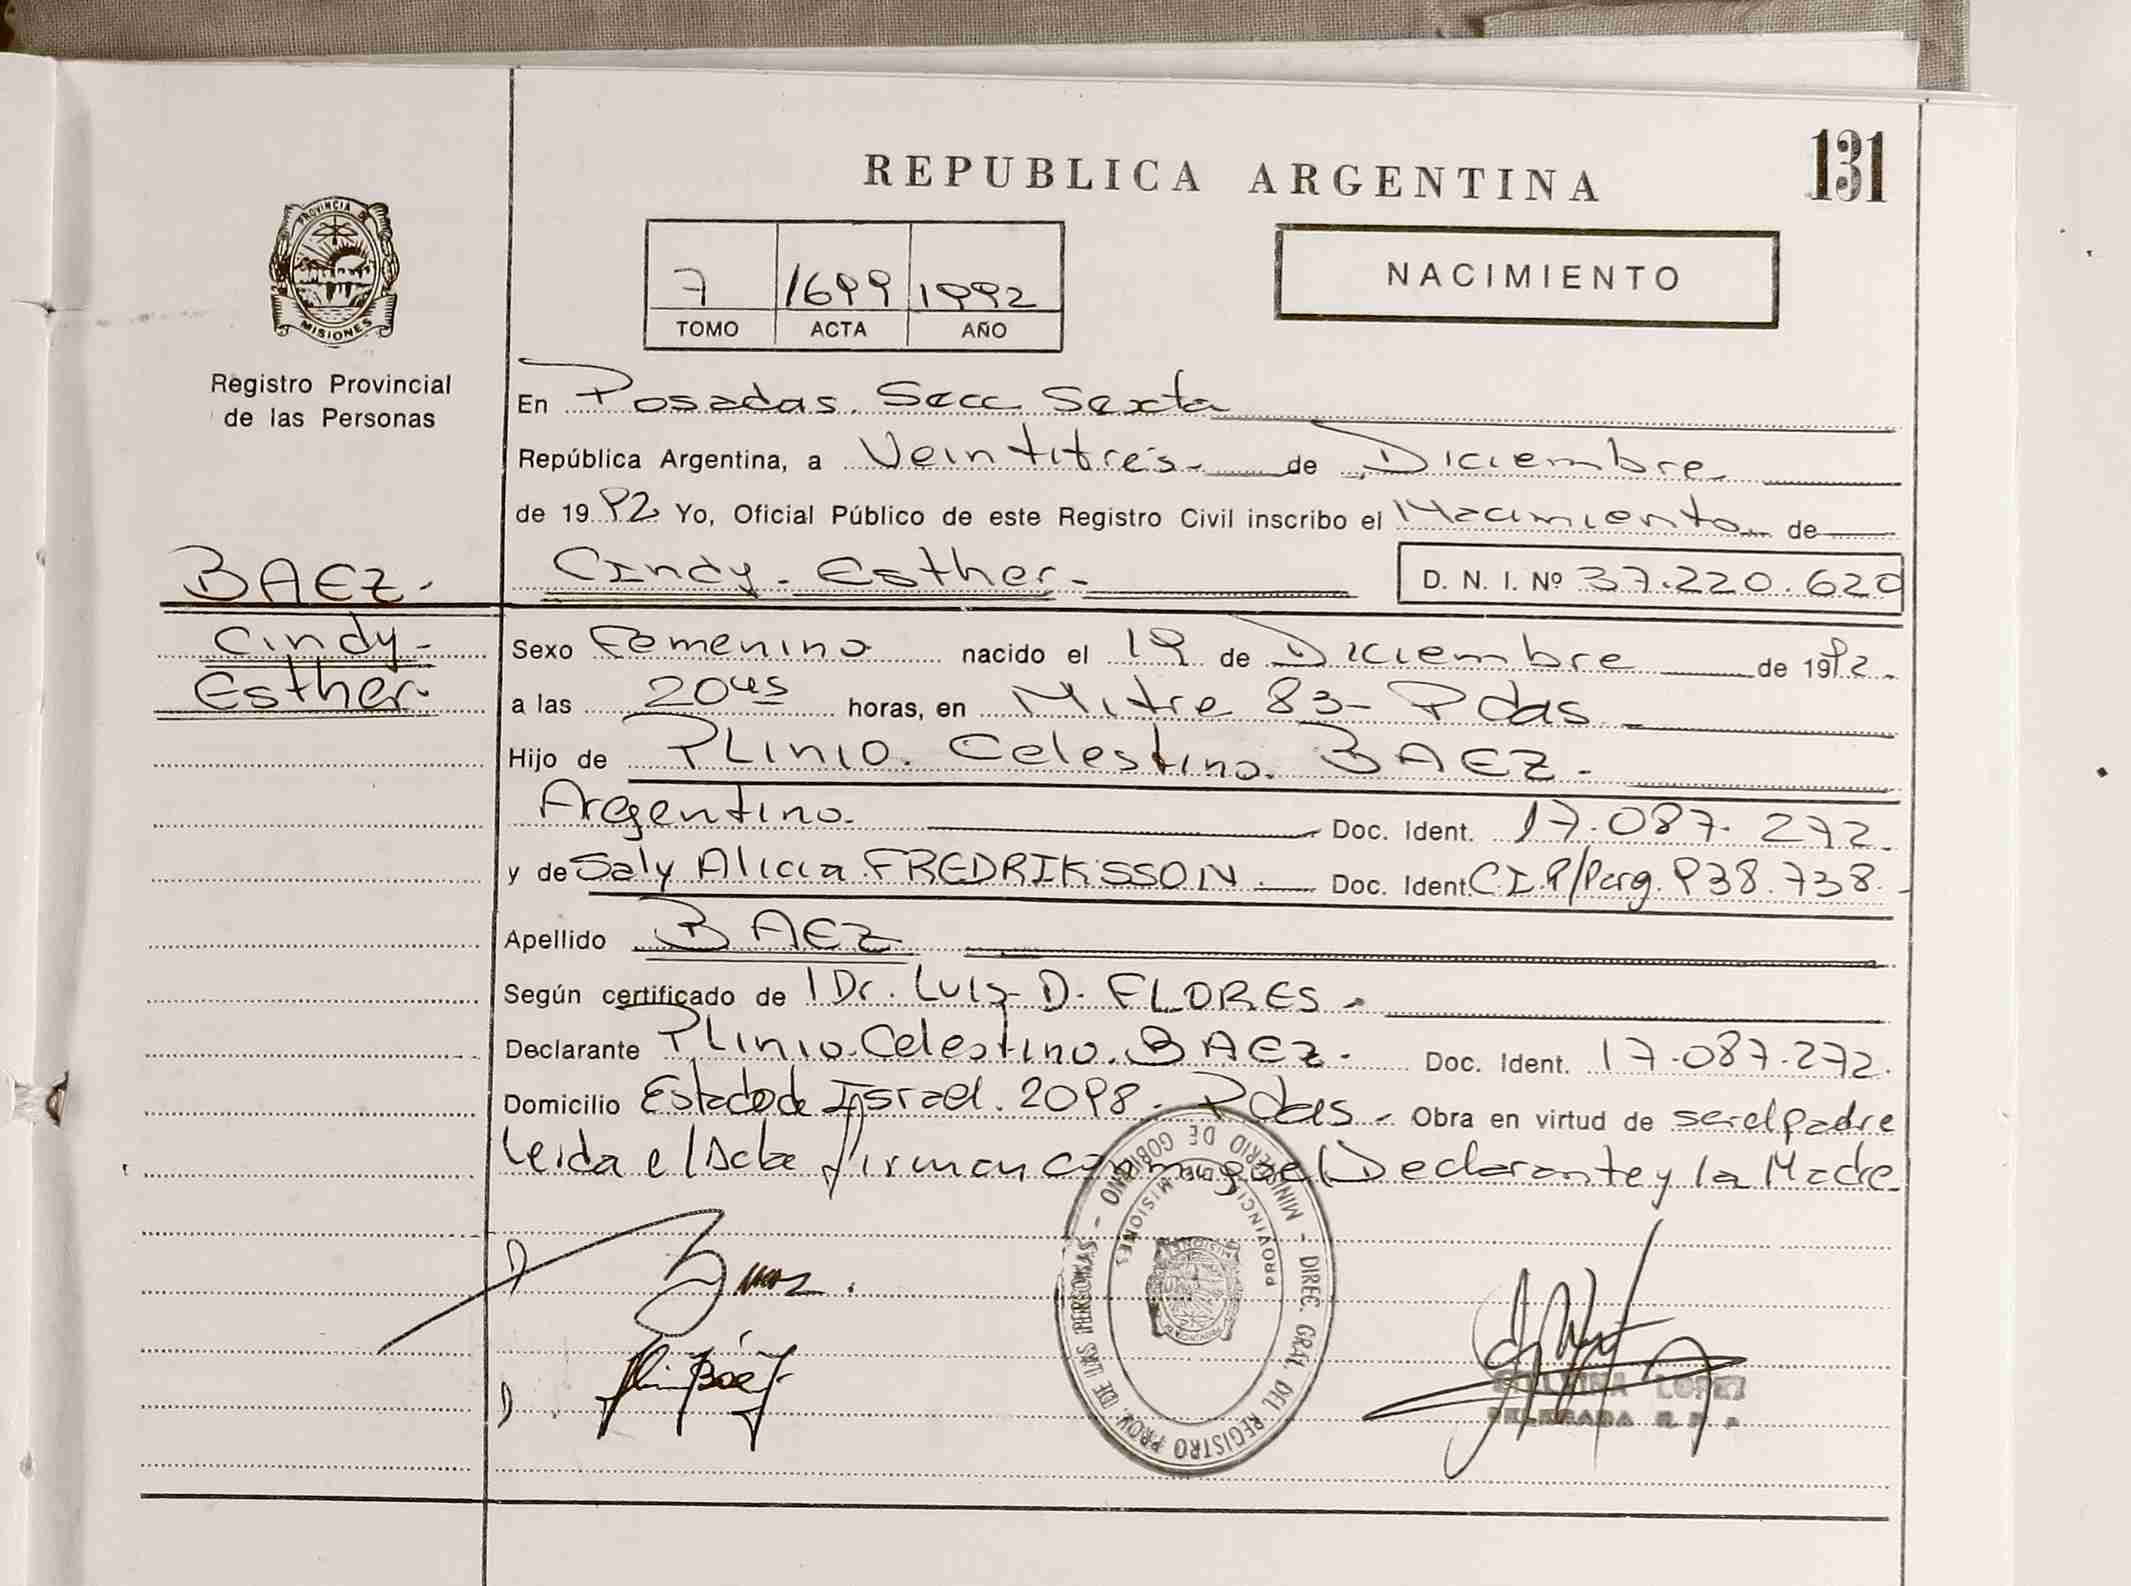 131
REPUBLICA ARGENTINA
NACIMIENTO
7 1699 1992
TOMO ACTA AÑO
PROVINCIA DE
MISIONES
Registro Provincial
de las Personas
En Posadas. Secc Sexta
República Argentina, a Veintitrés de Diciembre
de 1992 Yo, Oficial Público de este Registro Civil inscribo el Nacimiento de
BAEZ. Cindy. Esther. D. N. I. Nº 37.220.620
Cindy
Esther
Sexo Femenino nacido el 19 de Diciembre de 1992.
a las 20us horas, en Mitre 83- Pdas
Hijo de PLinio. Celestino. BAEZ.
Argentino. Doc. Ident. 17.087.272
y de Saly Alicia FREDRIKSSON. Doc. Ident. C.I.P/Parg. 938.738.
Apellido BAEZ
Según certificado de Dr. Luis D. FLORES.
Declarante PLinio. Celestino. BAEZ. Doc. Ident. 17.087.272.
Domicilio Estado de Israel. 2098. Pdas. Obra en virtud de ser el padre
Leida el Acta firman conmigo el Declarante y la Madre
MINISTERIO DE GOBIERNO - DIREC. GRAL. DEL REGISTRO PROV. DE LAS PERSONAS -
PROVINCIA DE MISIONES
LOPEZ
DELEGADA R. P.